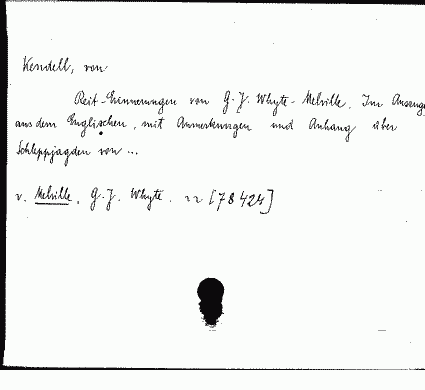 Kendell, von
Reit-Erinnerungen von G. J. Whyte-Melville. Im Auszuge
aus dem Englischen, mit Anmerkungen und Anhang über
Schleppjagden von ...
v. Melville, G. J. Whyte. [78424]